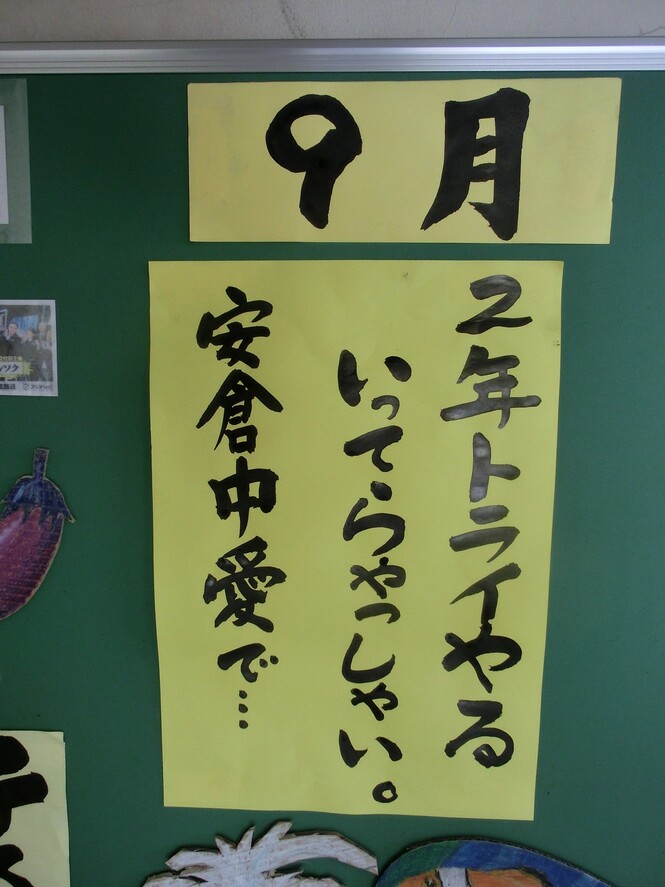 9月
2年トライやる
いってらゃっしゃい。
安倉中愛で…